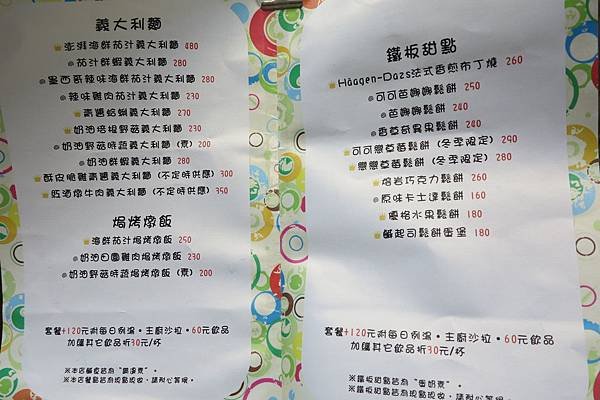 義大利麵
澎湃海鮮茄汁義大利麵 480
茄汁鮮蝦義大利麵 280
墨西哥辣味海鮮茄汁義大利麵 280
辣味雞肉茄汁義大利麵 230
青醬蛤蜊義大利麵 270
奶油培根野菇義大利麵 230
奶油野菇時蔬義大利麵(素) 200
奶油鮮蝦義大利麵 280
酥皮脆雞青醬義大利麵 (不定時供應) 300
紅酒燉牛肉義大利麵 (不定時供應) 350
焗烤燉飯
海鮮茄汁焗烤燉飯 250
奶油田園雞肉焗烤燉飯 230
奶油野菇時蔬焗烤燉飯 (素) 200
套餐+120元附每日例湯・主廚沙拉・60元飲品
加購其它飲品折30元/杯
※本店鹹食皆為"鍋邊素"。
※本店餐點皆為現點現做,請耐心等候。
鐵板甜點
Häagen-Dazs法式香煎布丁燒 260
可可芭娜娜鬆餅 250
芭娜娜鬆餅 240
香草奇異果鬆餅 240
可可戀草莓鬆餅 (冬季限定) 290
戀戀草莓鬆餅 (冬季限定) 280
熔岩巧克力鬆餅 260
原味卡士達鬆餅 160
優格水果鬆餅 180
鹹起司鬆餅堡 180
套餐+120元附每日例湯・主廚沙拉・60元飲品
加購其它飲品折30元/杯
※鐵板甜點皆為"蛋奶素"。
※鐵板甜點皆為現點現做,請耐心等候。